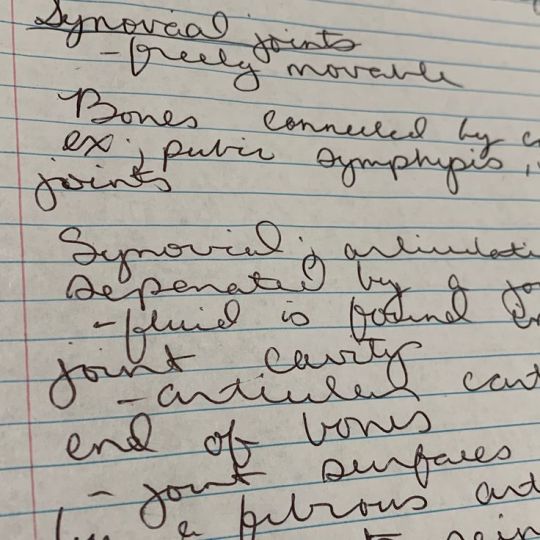 Synovial joints
- freely movable
Bones connected by
ex; pubic symphysis,
joints
Synovial; articulati
Seperated by a jo
- fluid is found in
joint cavity
- articular cart
end of bones
- joint surfaces
a fibrous art